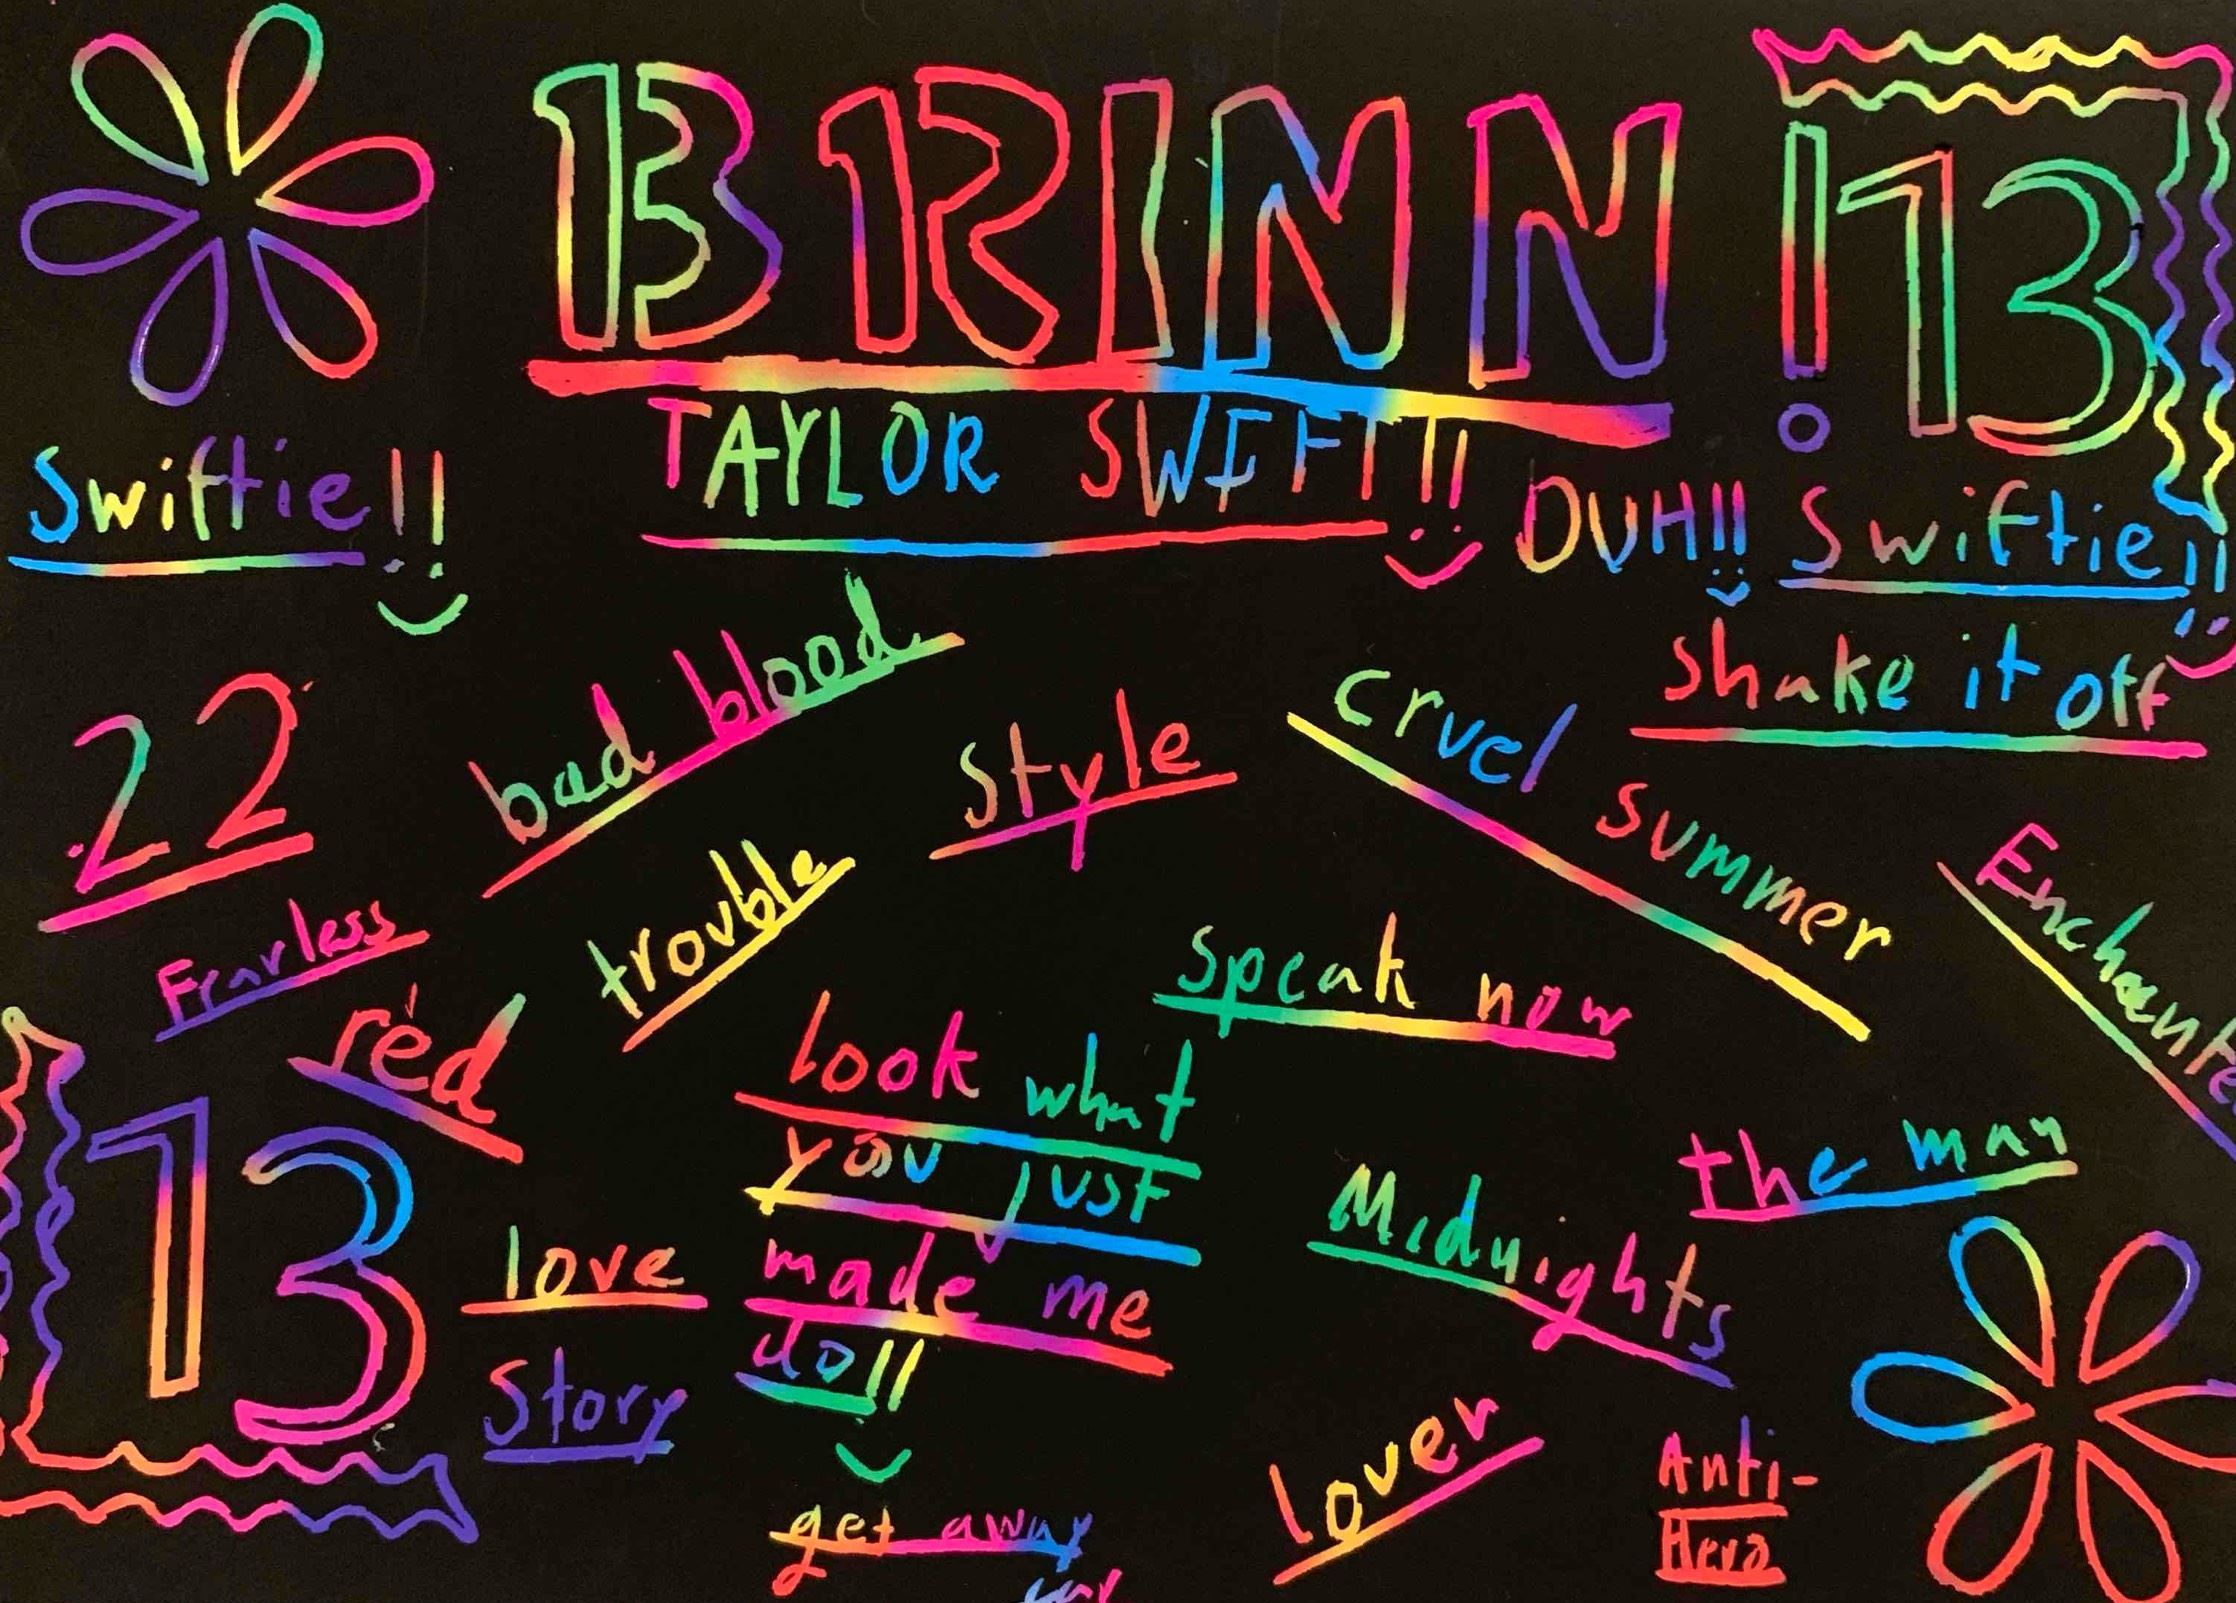 BRINN!
13
TAYLOR SWIFT!!
Swiftie!!
DUH!!
Swiftie!!
shake it off
bad blood
22
Style
cruel summer
trouble
Enchante
Fearless
speak now
red
look what
you just
made me
do!!
the man
13
Midnights
love
Story
lover
Anti-
Hero
get away
car